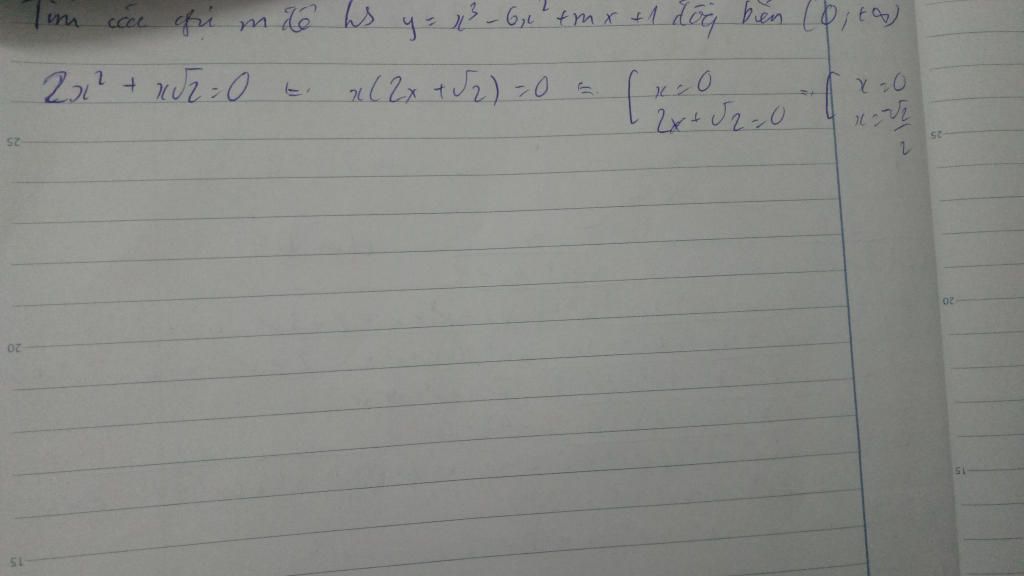 Tìm các gtrị m để hs y = x³ - 6x² + mx + 1 đồng biến (0; +∞)
2x² + x√2 = 0 ⇔ x(2x + √2) = 0 ⇔ [ x = 0 ⇔ [ x = 0
2x + √2 = 0 x = -√2/2
25
25
20
20
15
15